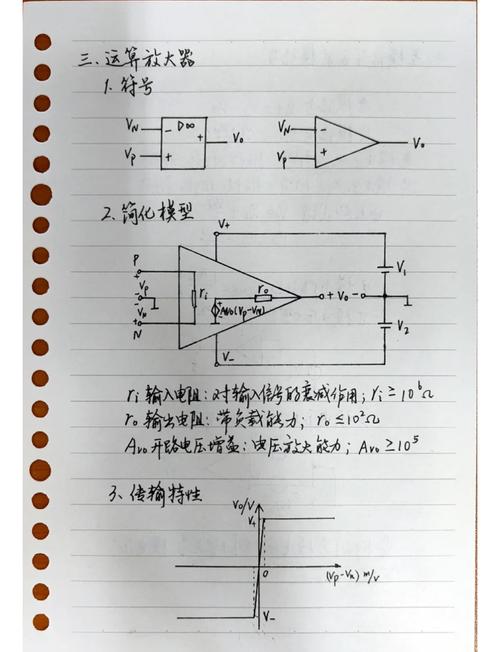 三、运算放大器
1. 符号
VN - D∞ + Vo
VP +
VN - Vo
VP +
2. 简化模型
V+
P
+
VP
-
-
VN
+
N
ri
ro
+ AVO(VP-VN) -
+ Vo -
V1
V2
V-
ri 输入电阻：对输入信号的衰减作用；ri ≥ 10⁶Ω
ro 输出电阻：带负载能力；ro ≤ 10²Ω
Avo 开路电压增益：电压放大能力；Avo ≥ 10⁵
3、传输特性
Vo/V
V+
0
(VP-VN) m/V
V-